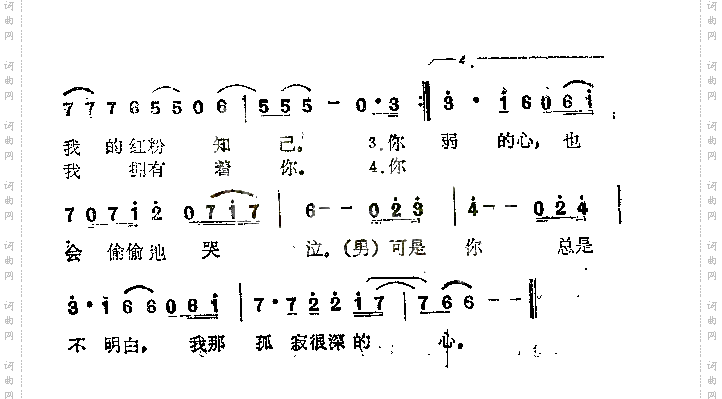 4.
7 7 7 6 5 5 0 6 i | 5 5 5 5 - 0 · 3 :| 3 · i 6 0 6 i
我 的红粉 知 己。 3.你 弱 的心,也
我 拥有 着 你。 4.你
7 0 7 i 2 0 7 i 7 | 6 - - 0 2 3 | 4 - - 0 2 4 |
会 偷偷地 哭 泣。(男)可是 你 总是
3 · i 6 6 0 6 i | 7 · 7 2 2 i 7 | 7 6 6 - - ‖
不 明白, 我那 孤 寂很深的 心。
词曲网 词曲网 词曲网 词曲网
词曲网 词曲网 词曲网 词曲网